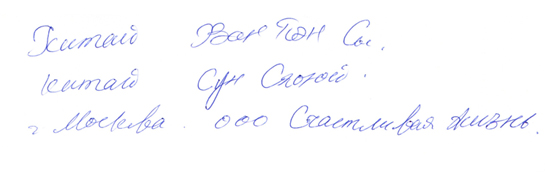 Китай Ван Тэн Сы.
Китай Сун Спокой.
г Москва. ООО Счастливая жизнь.